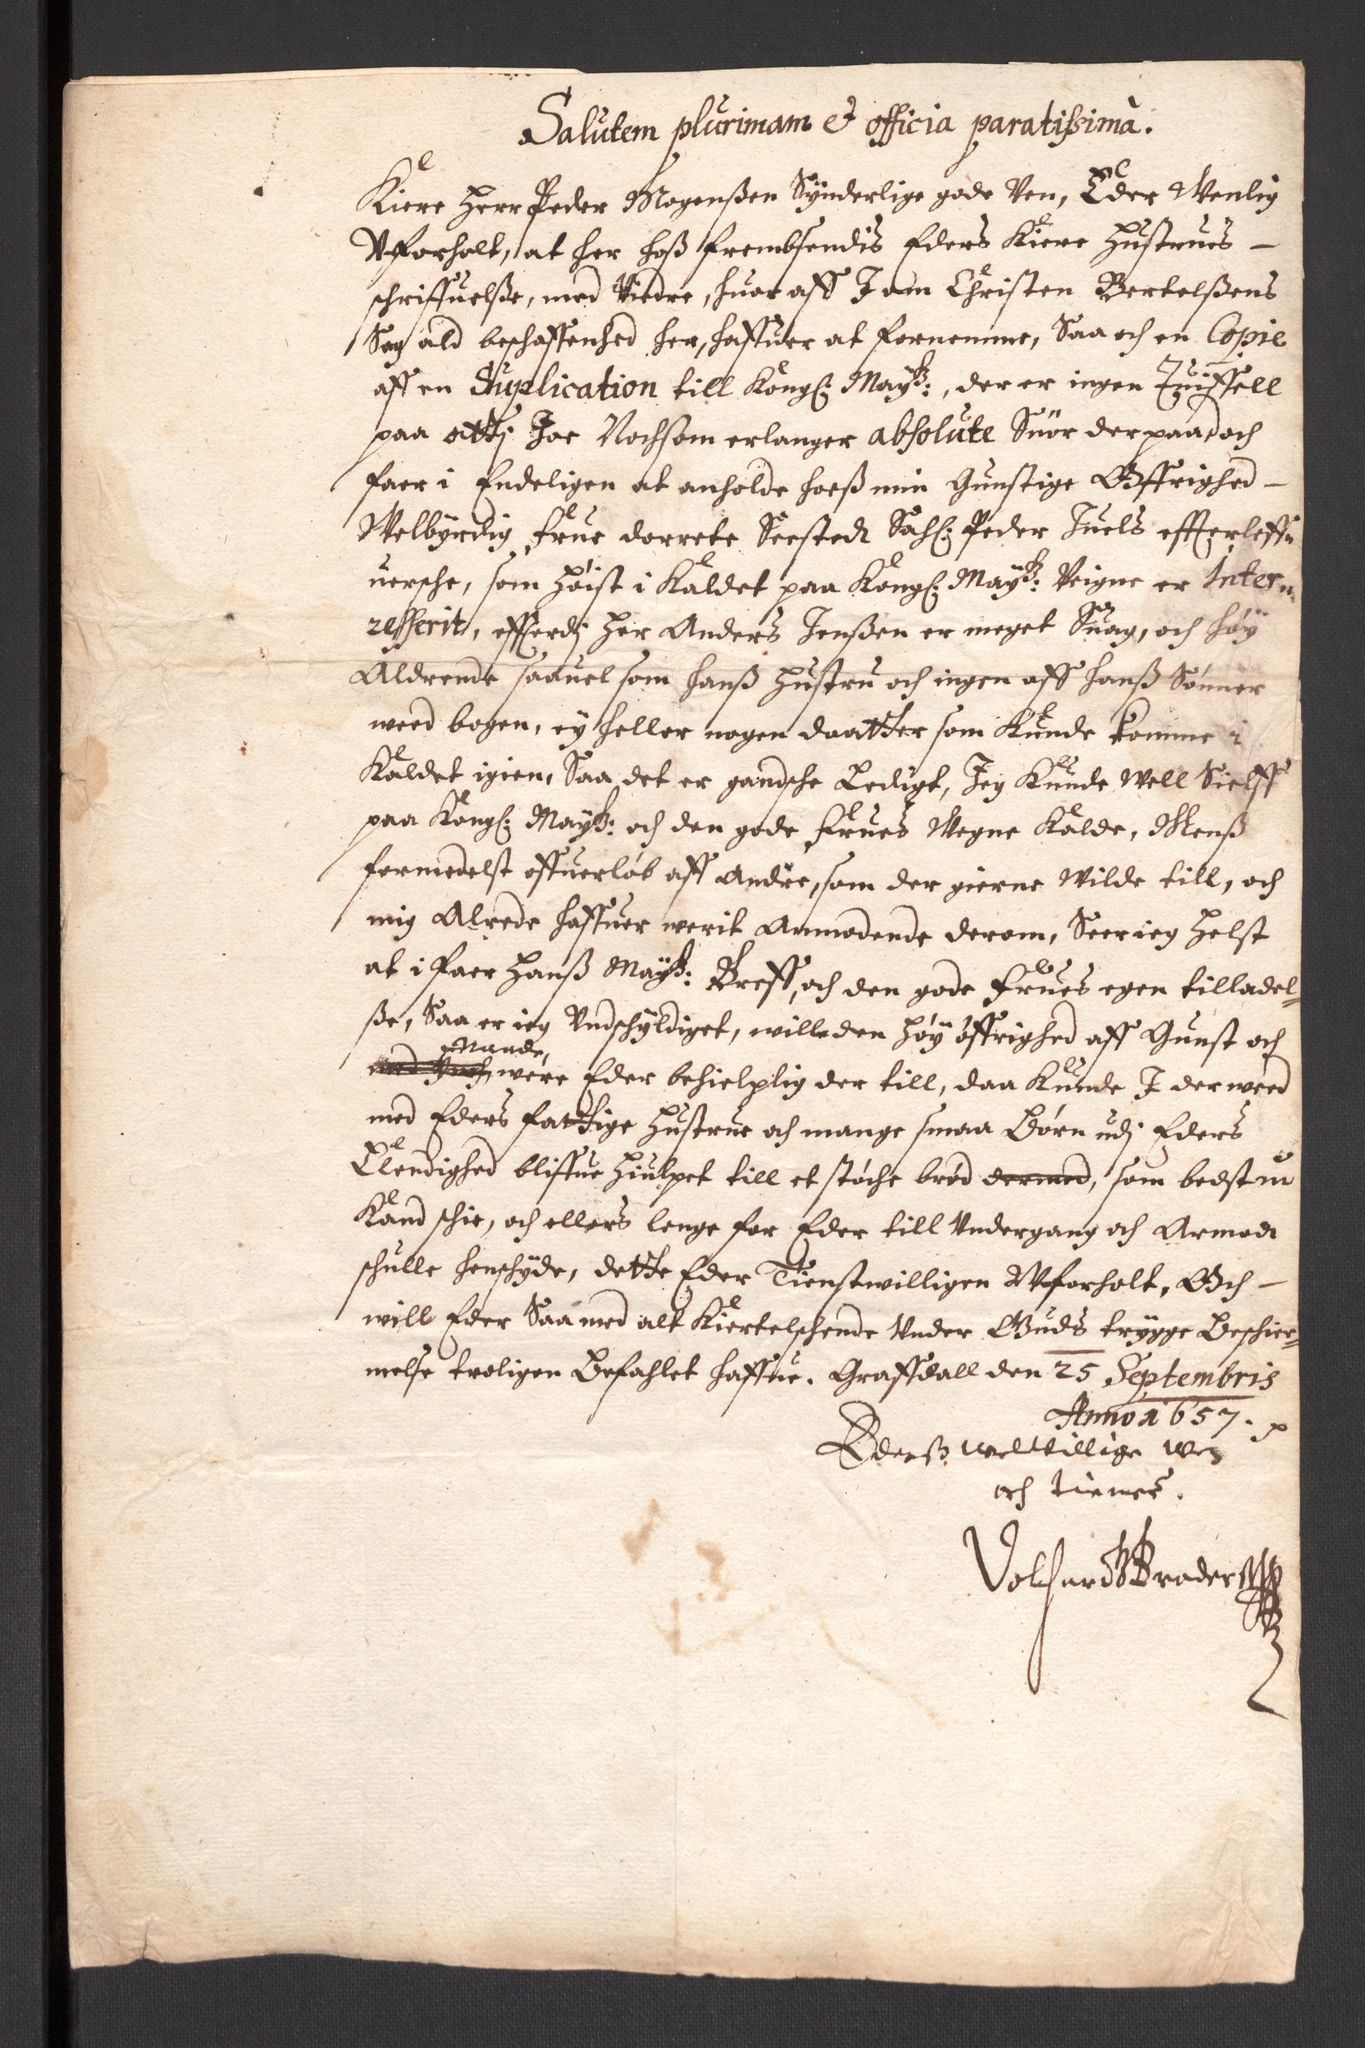 Salutem plurimam & officia paratissima.
Kiere Herr Peder Mogenßen Synderlige gode Ven, Eder Wenlig
Uforholt, at her hoß frembsendis Eders Kiere Hustrues -
schriffuelße, med Viedre, huor aff I om Christen Bertelßens
Sag ald beschaffenhed her, haffuer at fornemme, Saa och en Copie
aff en Supplication till Kongl: Maytz:, der er ingen Tuiffell
paa attj Joe Nochsom erlanger absolute Suör der paa, doch
faer i Endeligen at anholde hoeß min Gunstige Øffrighed -
Welbyrdig Frue dorrete Seested Sahl: Peder Juels effterleffu
uersche, som höist i Kaldet paa Kongl: Maytz: Veigne er Inter-
resserit, effterdj Her Anders Jenßen er meget Suag, och höy
Aldrende saauel som hanß Hustru och ingen aff hanß Sönner
weed bogen, ey heller nogen daatter som Kunde komme i
Kaldet igien, Saa det er gandsche Ledigt, Jeg Kunde Well Sielff
paa Kongl: Maytz: och den gode Frues Wegne Kalde, Menß
formedelst offuerlöb aff Andre, som der gierne Wilde till, och
mig Alrede haffuer werit Anmodende derom, Seer ieg Helst
at i faer Hanß Maytz: Breff, och den gode Frues egen tilladel-
ße, Saa er ieg Undschyldiget, wille den Höy öffrighed aff Gunst och
Naade, were Eder behielplig der till, daa Kunde I der weed
med Eders fattige Hustrue och mange smaa Börn udj Eders
Elendighed bliffue Hiulpet till et stöche bröd dermed, som bedst nu
Kand schie, och ellers lenge for Eder till Undergang och Armod
schulle henschyde, dette Eder Tienstwilligen Uforholt, Och -
will Eder Saa med alt Kiertelschende Under Guds trygge Beschier-
melse troligen Befahlet haffue. Graffdall den 25 Septembris
Anno 1657.
Ederß welwillige wen
och tiener.
Volchardt Broderß